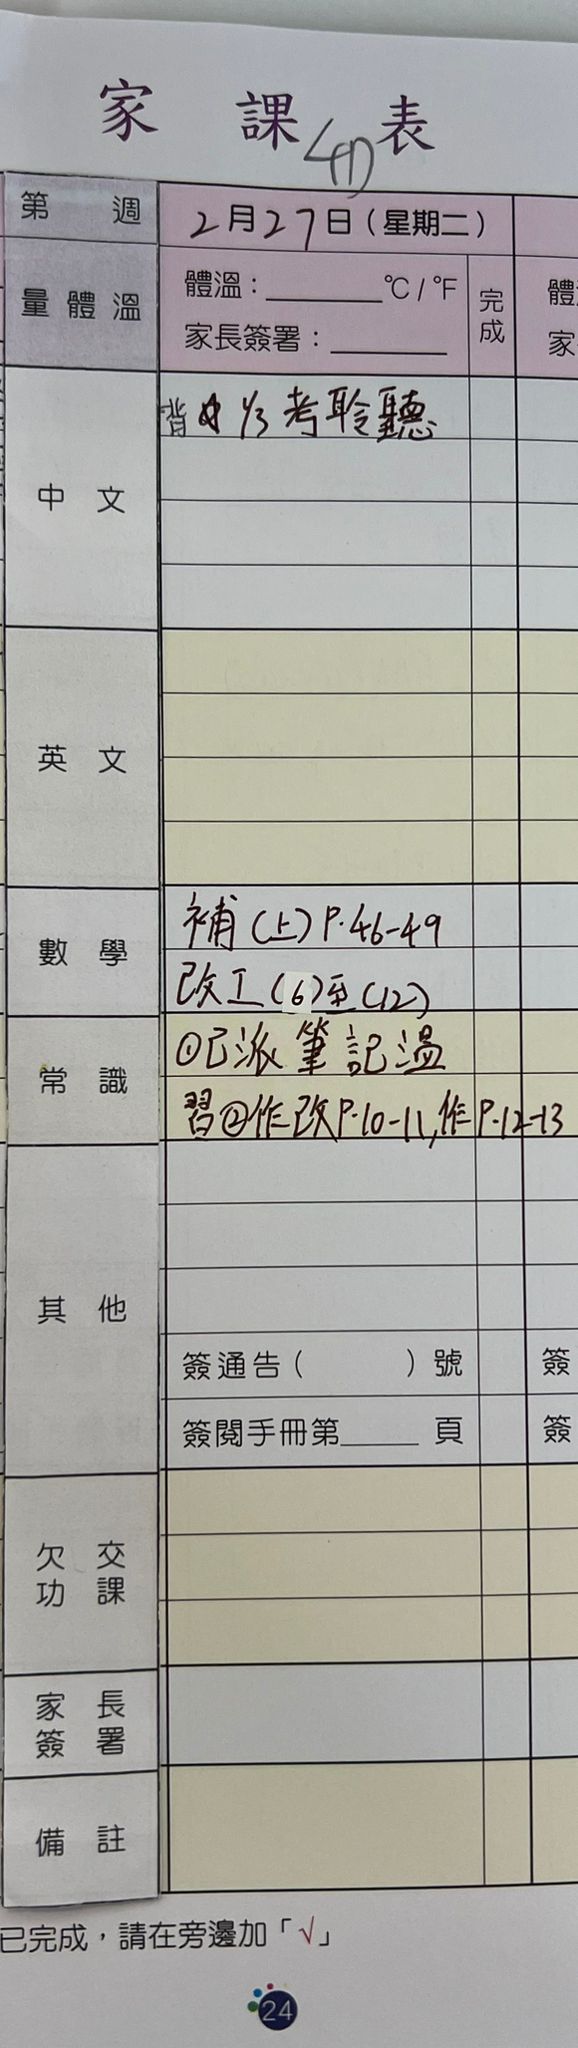 家課表
4D
第週
2月27日(星期二)
量體溫
體溫：______°C/°F
家長簽署：______
完成
體
家
中文
背 1/3考聆聽
英文
數學
補(上)P.46-49
改工(6)至(12)
常識
①已派筆記溫
習②作改P.10-11,作P.12-13
其他
簽通告(   )號
簽
簽閱手冊第____頁
簽
欠交
功課
家長
簽署
備註
已完成，請在旁邊加「√」
24